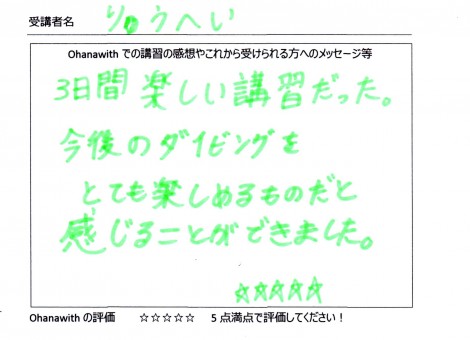 受講者名 りゅうへい
Ohanawith での講習の感想やこれから受けられる方へのメッセージ等
3日間 楽しい講習だった。
今後のダイビングを
とても楽しめるものだと
感じることができました。
☆☆☆☆☆
Ohanawith の評価 ☆☆☆☆☆ 5点満点で評価してください！